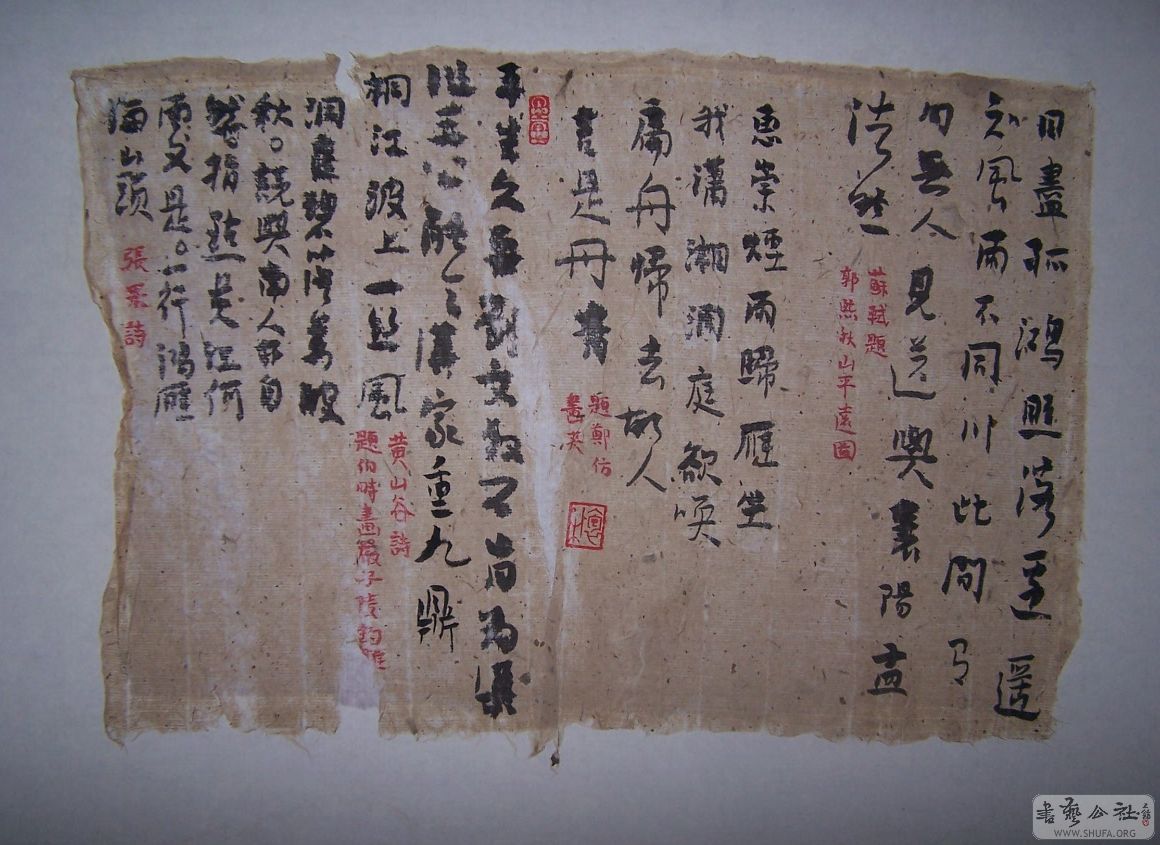 目盡孤鴻照落邊遥
知風雨不同川此間有
句無人見送與襄陽孟
浩然
蘇軾題
郭熙秋山平遠圖
惠崇煙雨歸雁坐
我瀟湘洞庭欲喚
扁舟歸去故人
言是丹青
題鄭仿
畫夾
平生久要劉文叔不肯為渠
作三公能令漢家重九鼎
桐江波上一絲風
黃山谷詩
題伯時畫嚴子陵釣灘
灣萬
秋。與南人自
然。指點是江何
又是。一行鴻雁
海山頭
張詩
書藝公社
WWW.SHUFA.ORG